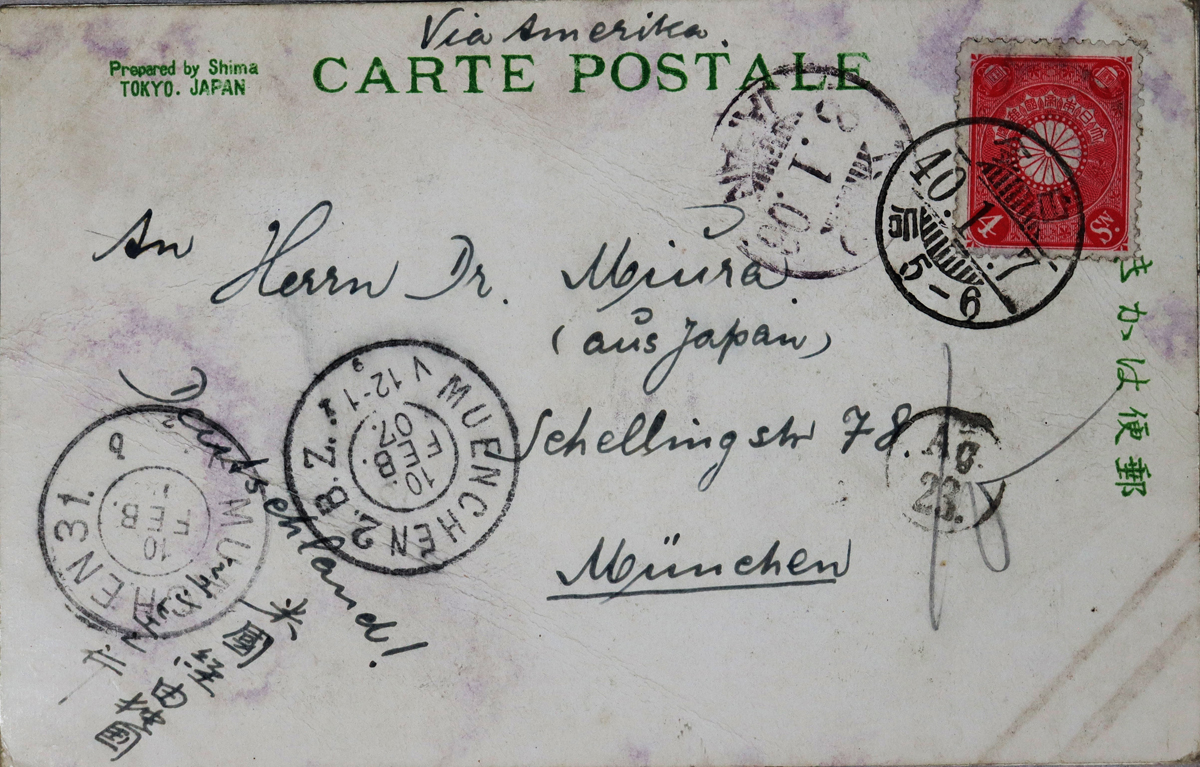 Via Amerika.
Prepared by Shima
TOKYO. JAPAN
CARTE POSTALE
8.1.06
4 Sn.
40.1.7
5-6
郵便はかき
An Herrn Dr. Miura
(aus Japan)
Schellingstr 78.
München
Deutschland!
MUENCHEN 2.B.Z.
V 12-1
10
FEB.
07.
MUENCHEN 31.
10
FEB.
AG.
23.
米國経由
獨國